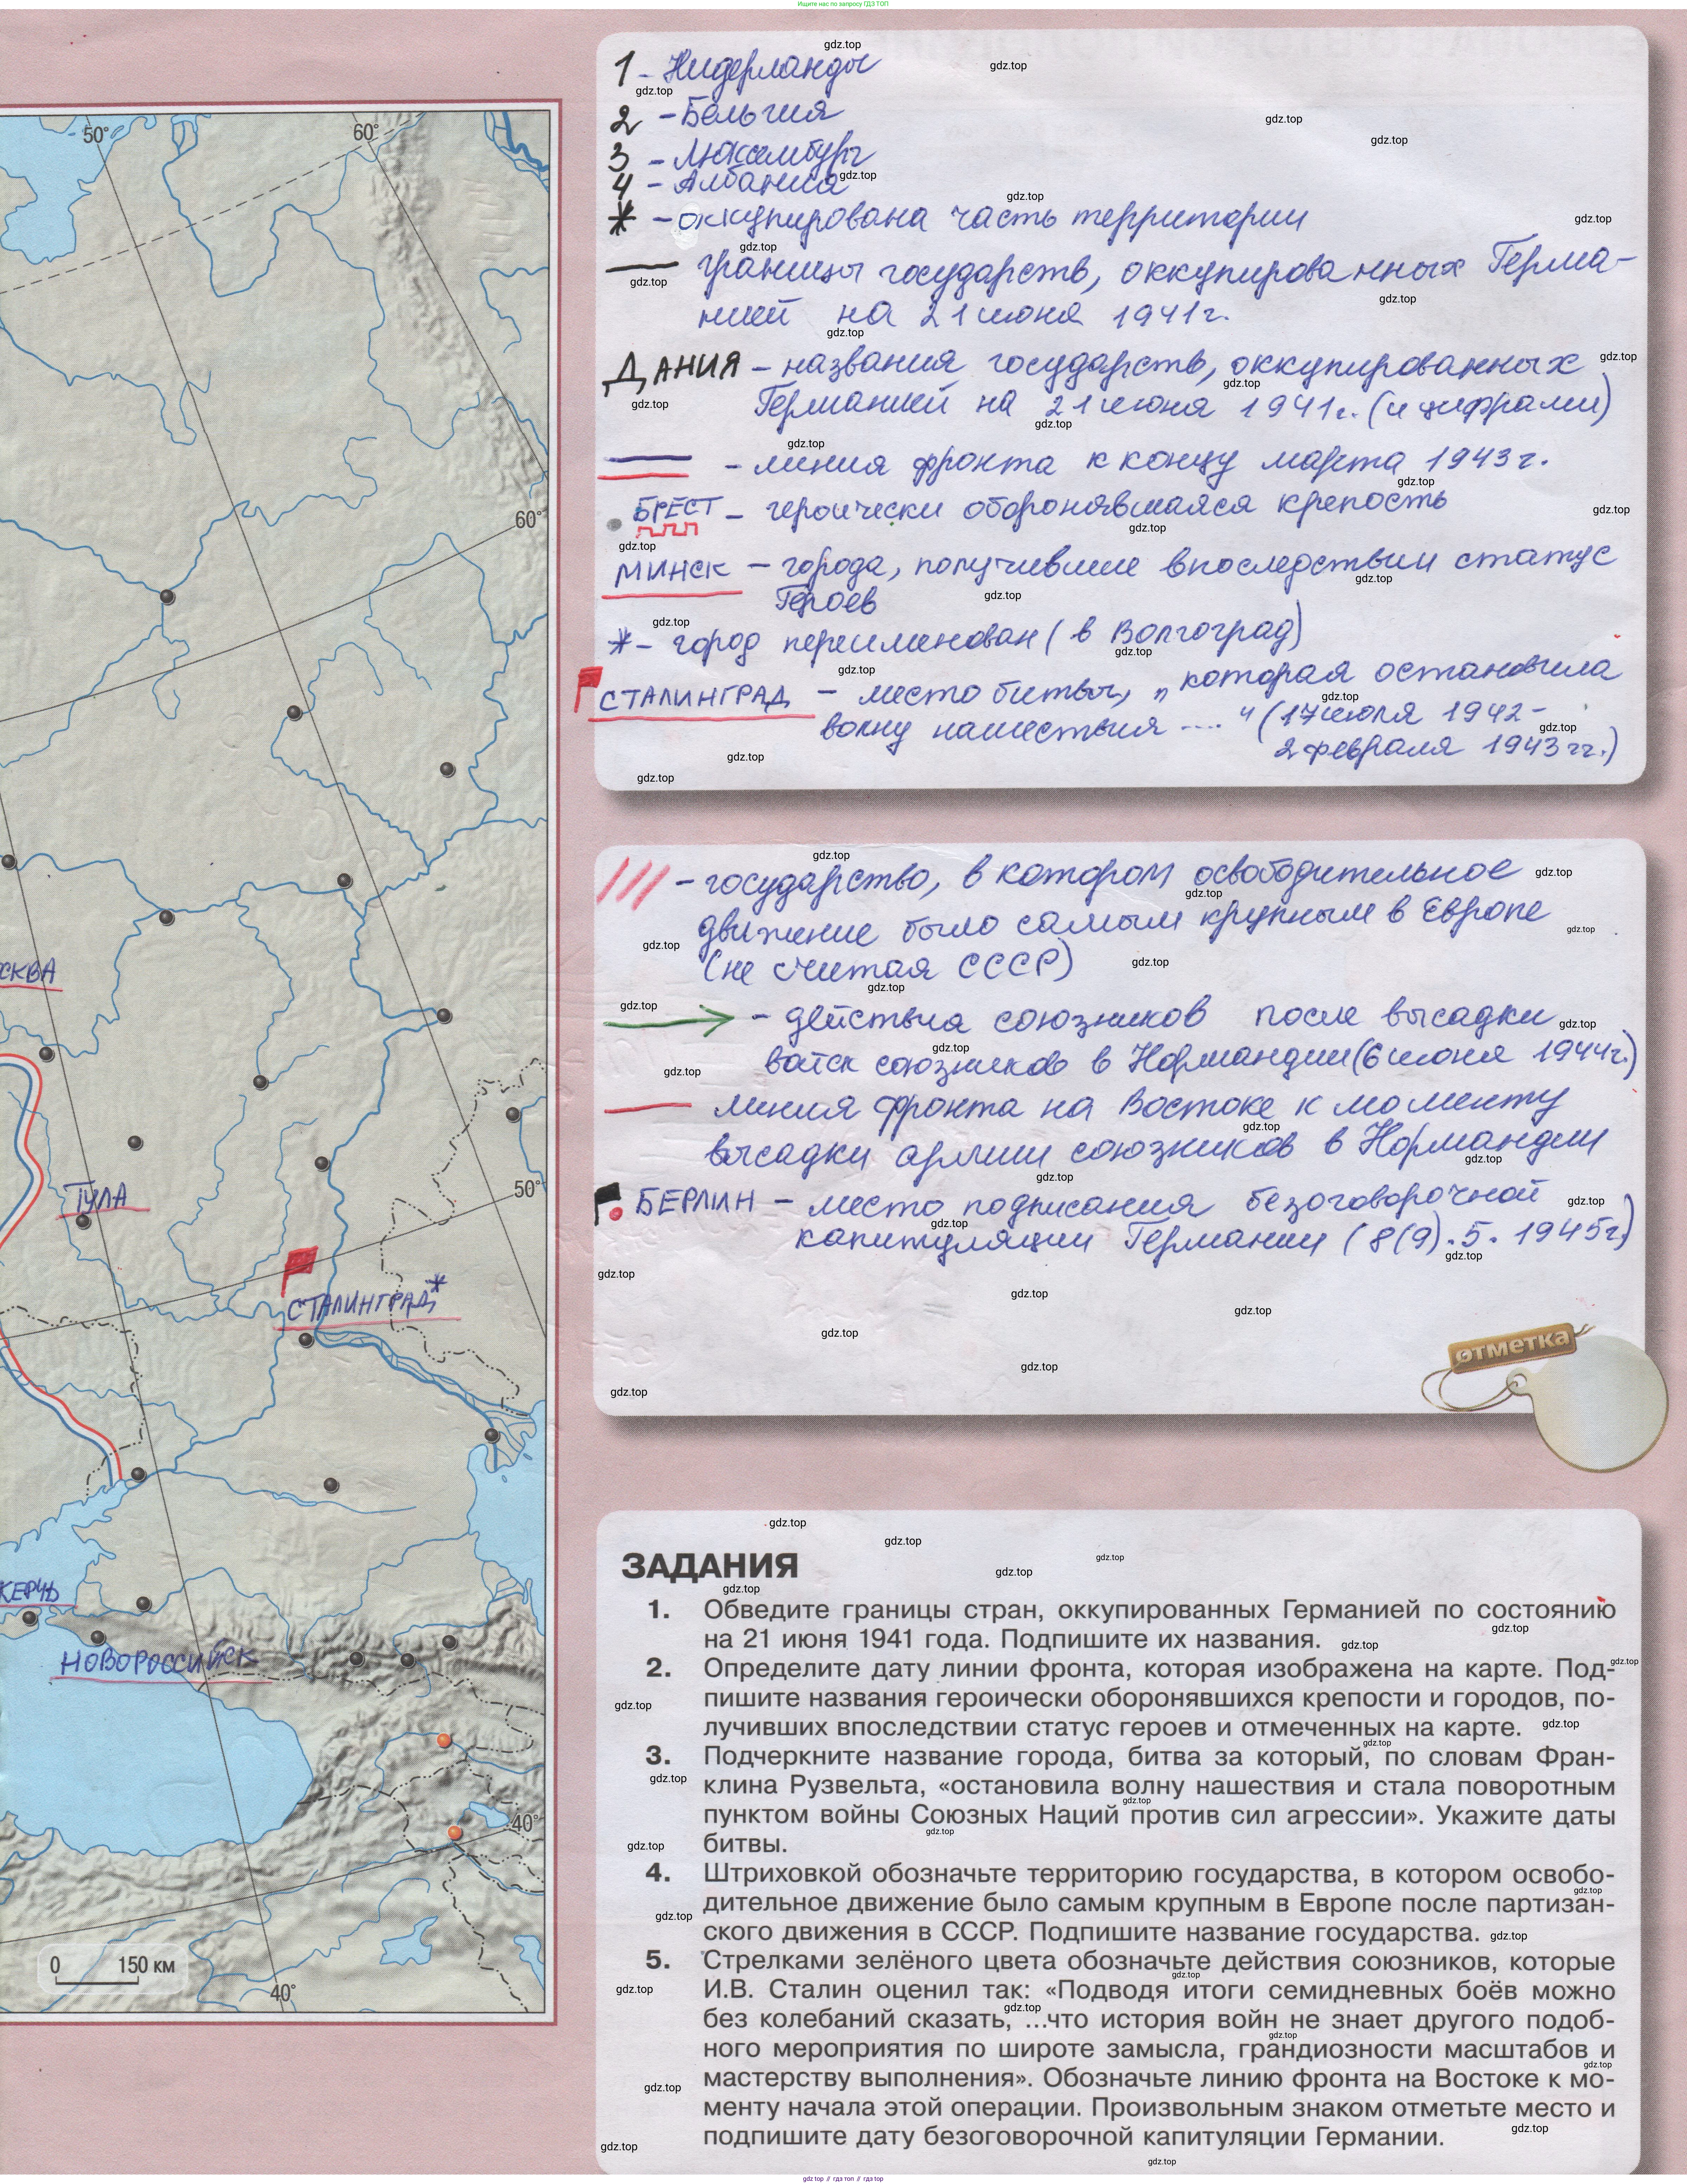 Ищите нас по запросу ГДЗ ТОП
1 - Нидерланды
2 - Бельгия
3 - Люксембург
4 - Албания
* - оккупирована часть территории
границы государств, оккупированных Герма-
нией на 21 июня 1941г.
ДАНИЯ - названия государств, оккупированных
Германией на 21 июня 1941г. (и цифрами)
- линия фронта к концу марта 1943г.
БРЕСТ - героически оборонявшаяся крепость
МИНСК - города, получившие впоследствии статус
Героев
* - город переименован (в Волгоград)
СТАЛИНГРАД - место битвы, „которая остановила
волну нашествия ...." (17 июля 1942-
2 февраля 1943гг.)
- государство, в котором освободительное
движение было самым крупным в Европе
(не считая СССР)
- действия союзников после высадки
войск союзников в Нормандии (6 июня 1944г.)
линия фронта на Востоке к моменту
высадки армии союзников в Нормандии
БЕРЛИН - место подписания безоговорочной
капитуляции Германии (8(9).5.1945г)
отметка
50°
60°
60°
СКВА
ТУЛА
50°
СТАЛИНГРАД*
КЕРЧЬ
НОВОРОССИЙСК
40°
0 150 км
40°
ЗАДАНИЯ
1. Обведите границы стран, оккупированных Германией по состоянию
на 21 июня 1941 года. Подпишите их названия.
2. Определите дату линии фронта, которая изображена на карте. Под-
пишите названия героически оборонявшихся крепости и городов, по-
лучивших впоследствии статус героев и отмеченных на карте.
3. Подчеркните название города, битва за который, по словам Фран-
клина Рузвельта, «остановила волну нашествия и стала поворотным
пунктом войны Союзных Наций против сил агрессии». Укажите даты
битвы.
4. Штриховкой обозначьте территорию государства, в котором освобо-
дительное движение было самым крупным в Европе после партизан-
ского движения в СССР. Подпишите название государства.
5. Стрелками зелёного цвета обозначьте действия союзников, которые
И.В. Сталин оценил так: «Подводя итоги семидневных боёв можно
без колебаний сказать, ...что история войн не знает другого подоб-
ного мероприятия по широте замысла, грандиозности масштабов и
мастерству выполнения». Обозначьте линию фронта на Востоке к мо-
менту начала этой операции. Произвольным знаком отметьте место и
подпишите дату безоговорочной капитуляции Германии.
gdz.top
gdz top // гдз топ // гдз top